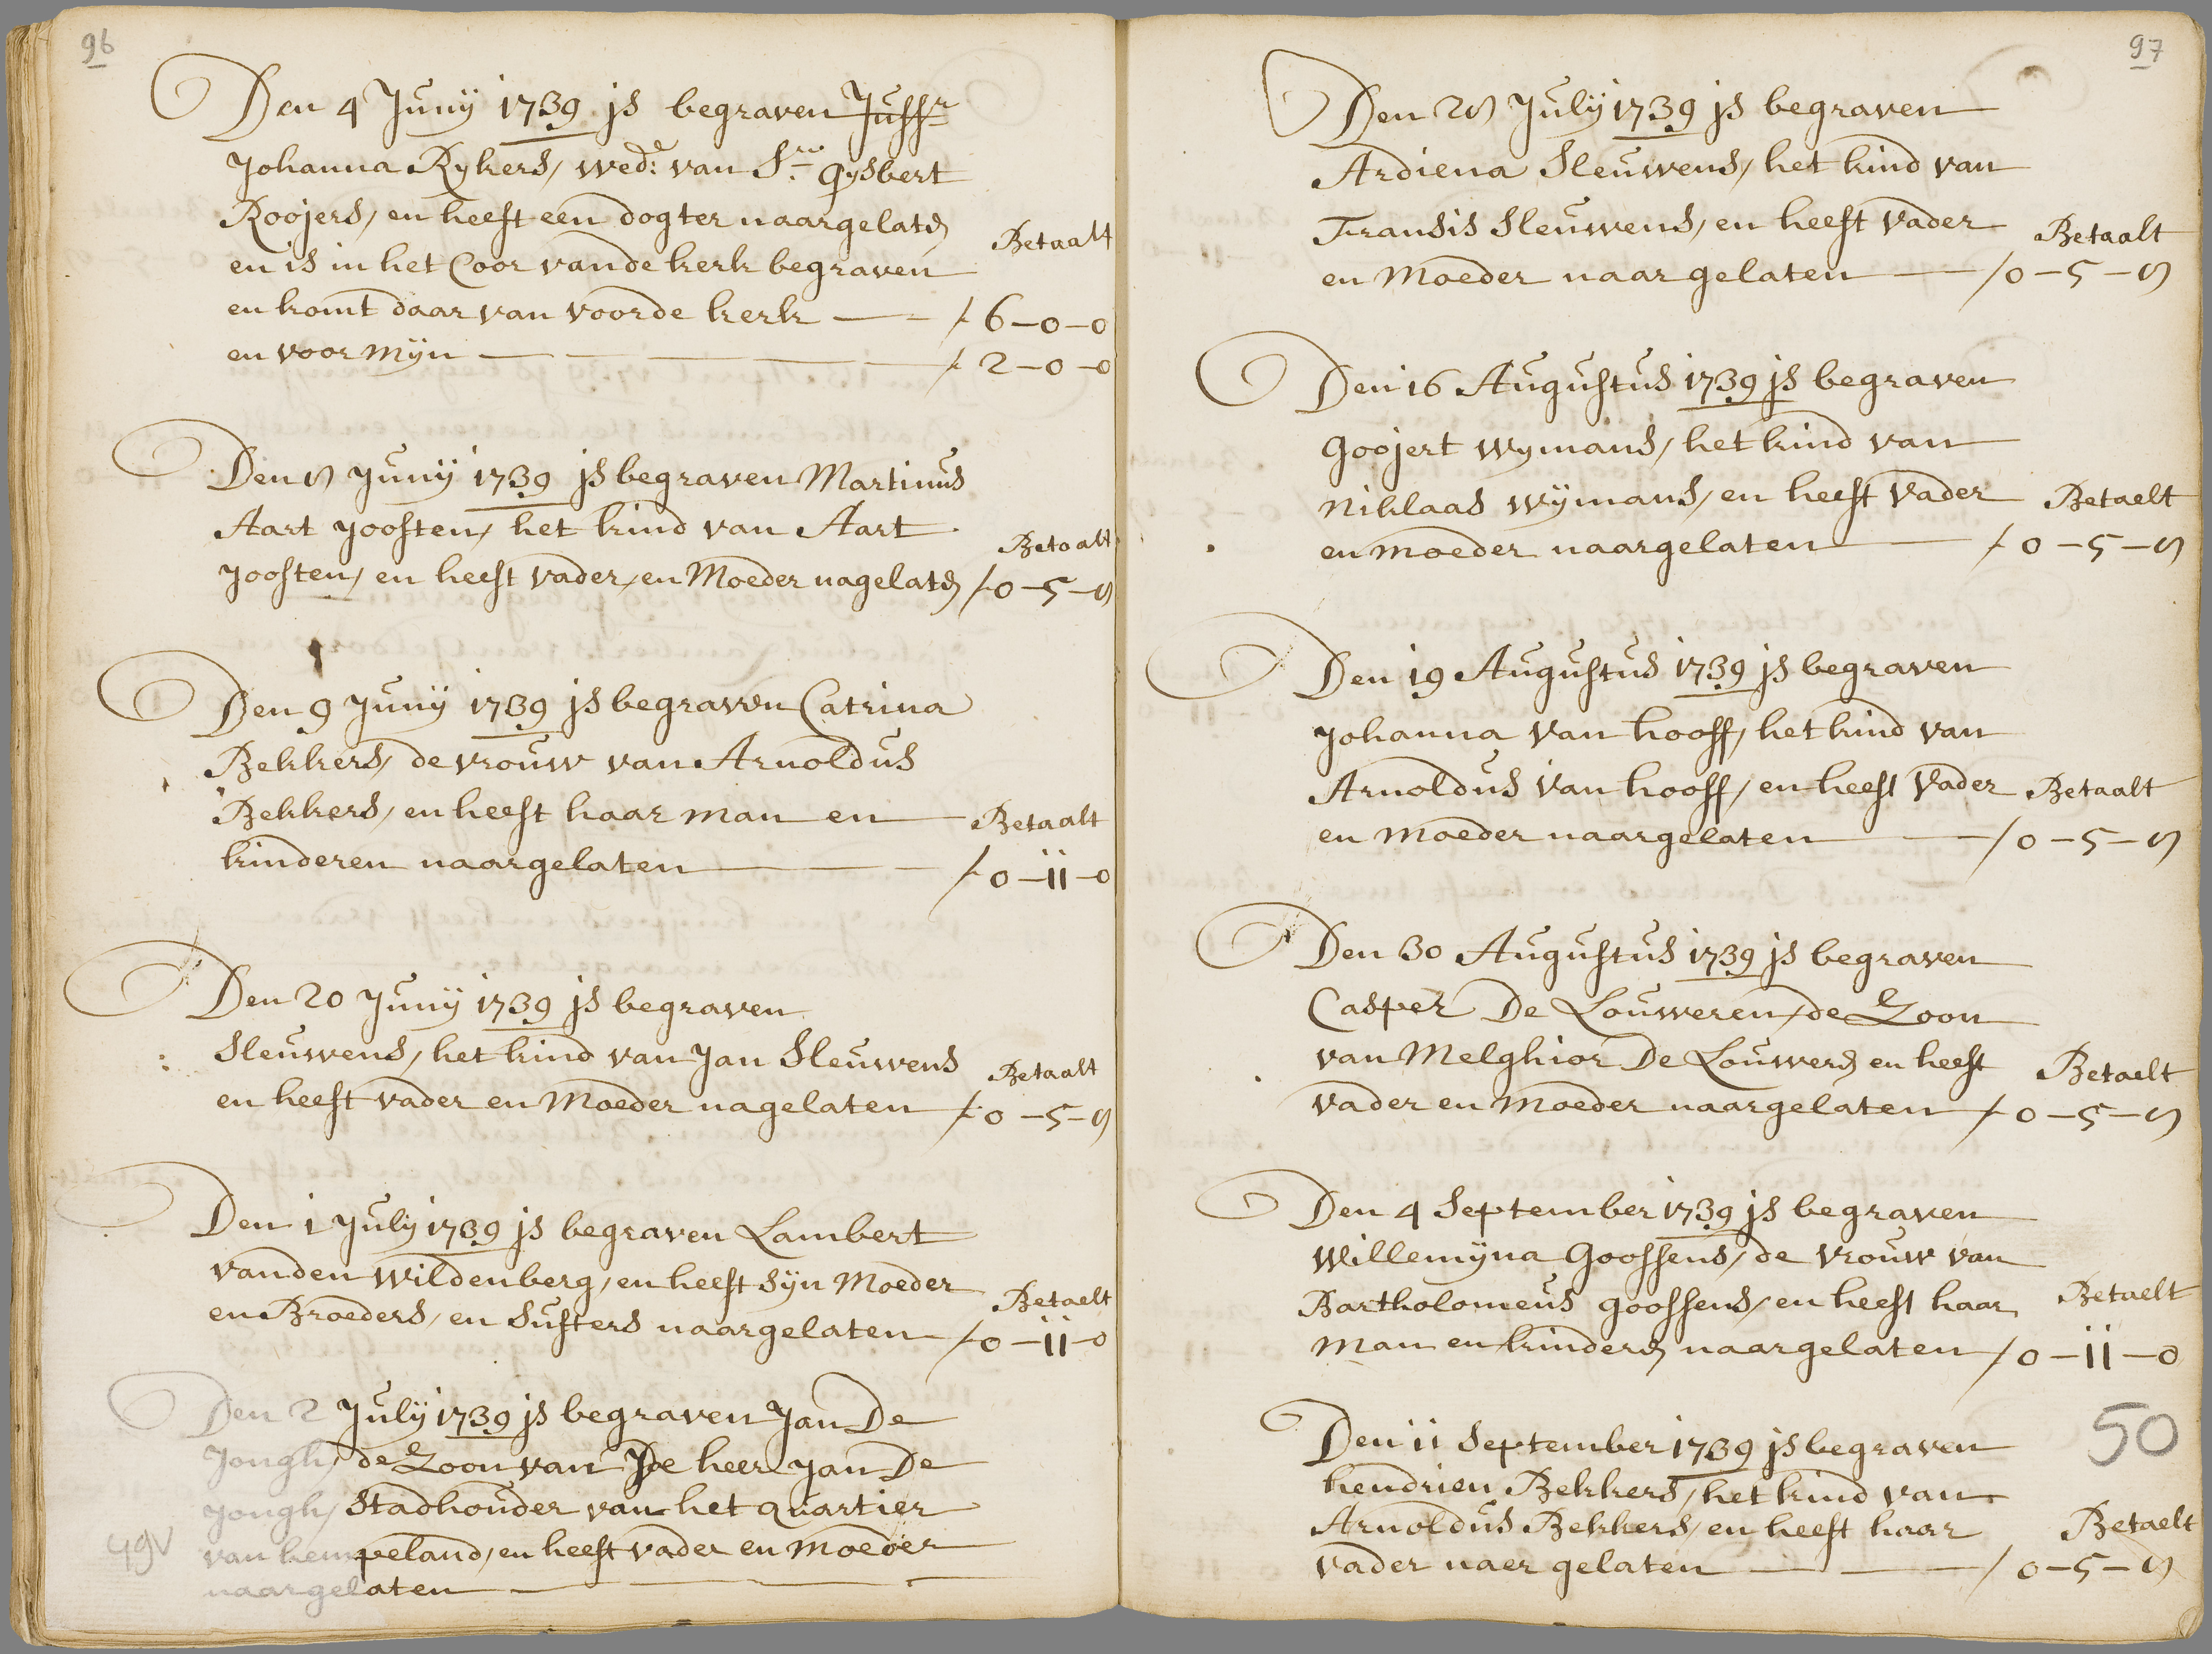 96
Den 4 Junij 1739 js begraven Juffr
Johanna Rykers, wed: van Sr. Gysbert
Roojers, en heeft een dogter naargelaten
Betaalt
en is in het Coor van de kerk begraven
en komt daar van voor de kerk — f 6-0-0
en voor mijn — f 2-0-0
Den 8 Junij 1739 js begraven Martinus
Aart Joosten, het kind van Aart
Betaalt
Joosten, en heeft vader, en Moeder nagelaten f 0-5-8
Den 9 Junij 1739 js begraven Catrina
Bekkers, de vrouw van Arnoldus
Bekkers, en heeft haar man en
Betaalt
kinderen naargelaten — f 0-11-0
Den 20 Junij 1739 js begraven
Sleuwens, het kind van Jan Sleuwens
Betaalt
en heeft vader en Moeder nagelaten f 0-5-8
Den 1 July 1739 js begraven Lambert
vanden Wildenberg, en heeft sijn Moeder
Betaelt
en Broeders, en Susters naargelaten f 0-11-0
Den 2 July 1739 js begraven Jan De
Jongh, de Zoon van De heer Jan De
Jongh, Stadhouder van het quartier
49v
van kempeland, en heeft vader en moeder
naargelaten —
97
Den 28 July 1739 js begraven
Ardiena Sleuwens, het kind van
Fransis Sleuwens, en heeft vader
Betaalt
en Moeder naar gelaten — f 0-5-8
Den 16 Augustus 1739 js begraven
Goojert Wymans, het kind van
Niklaas Wijmans, en heeft vader
Betaelt
en moeder naargelaten — f 0-5-8
Den 19 Augustus 1739 js begraven
Johanna van hooff, het kind van
Arnoldus van hooff, en heeft vader
Betaalt
en moeder naargelaten — f 0-5-8
Den 30 Augustus 1739 js begraven
Casper De Louweren, de Zoon
van Melghior De Louweren en heeft
Betaelt
vader en moeder naargelaten f 0-5-8
Den 4 September 1739 js begraven
Willemijna Goossens, de vrouw van
Bartholomeus goossens, en heeft haar
Betaelt
man en kinderen naargelaten f 0-11-0
50
Den 11 September 1739 js begraven
hendrien Bekkers, het kind van
Arnoldus Bekkers, en heeft haar
Betaelt
vader naer gelaten — f 0-5-8